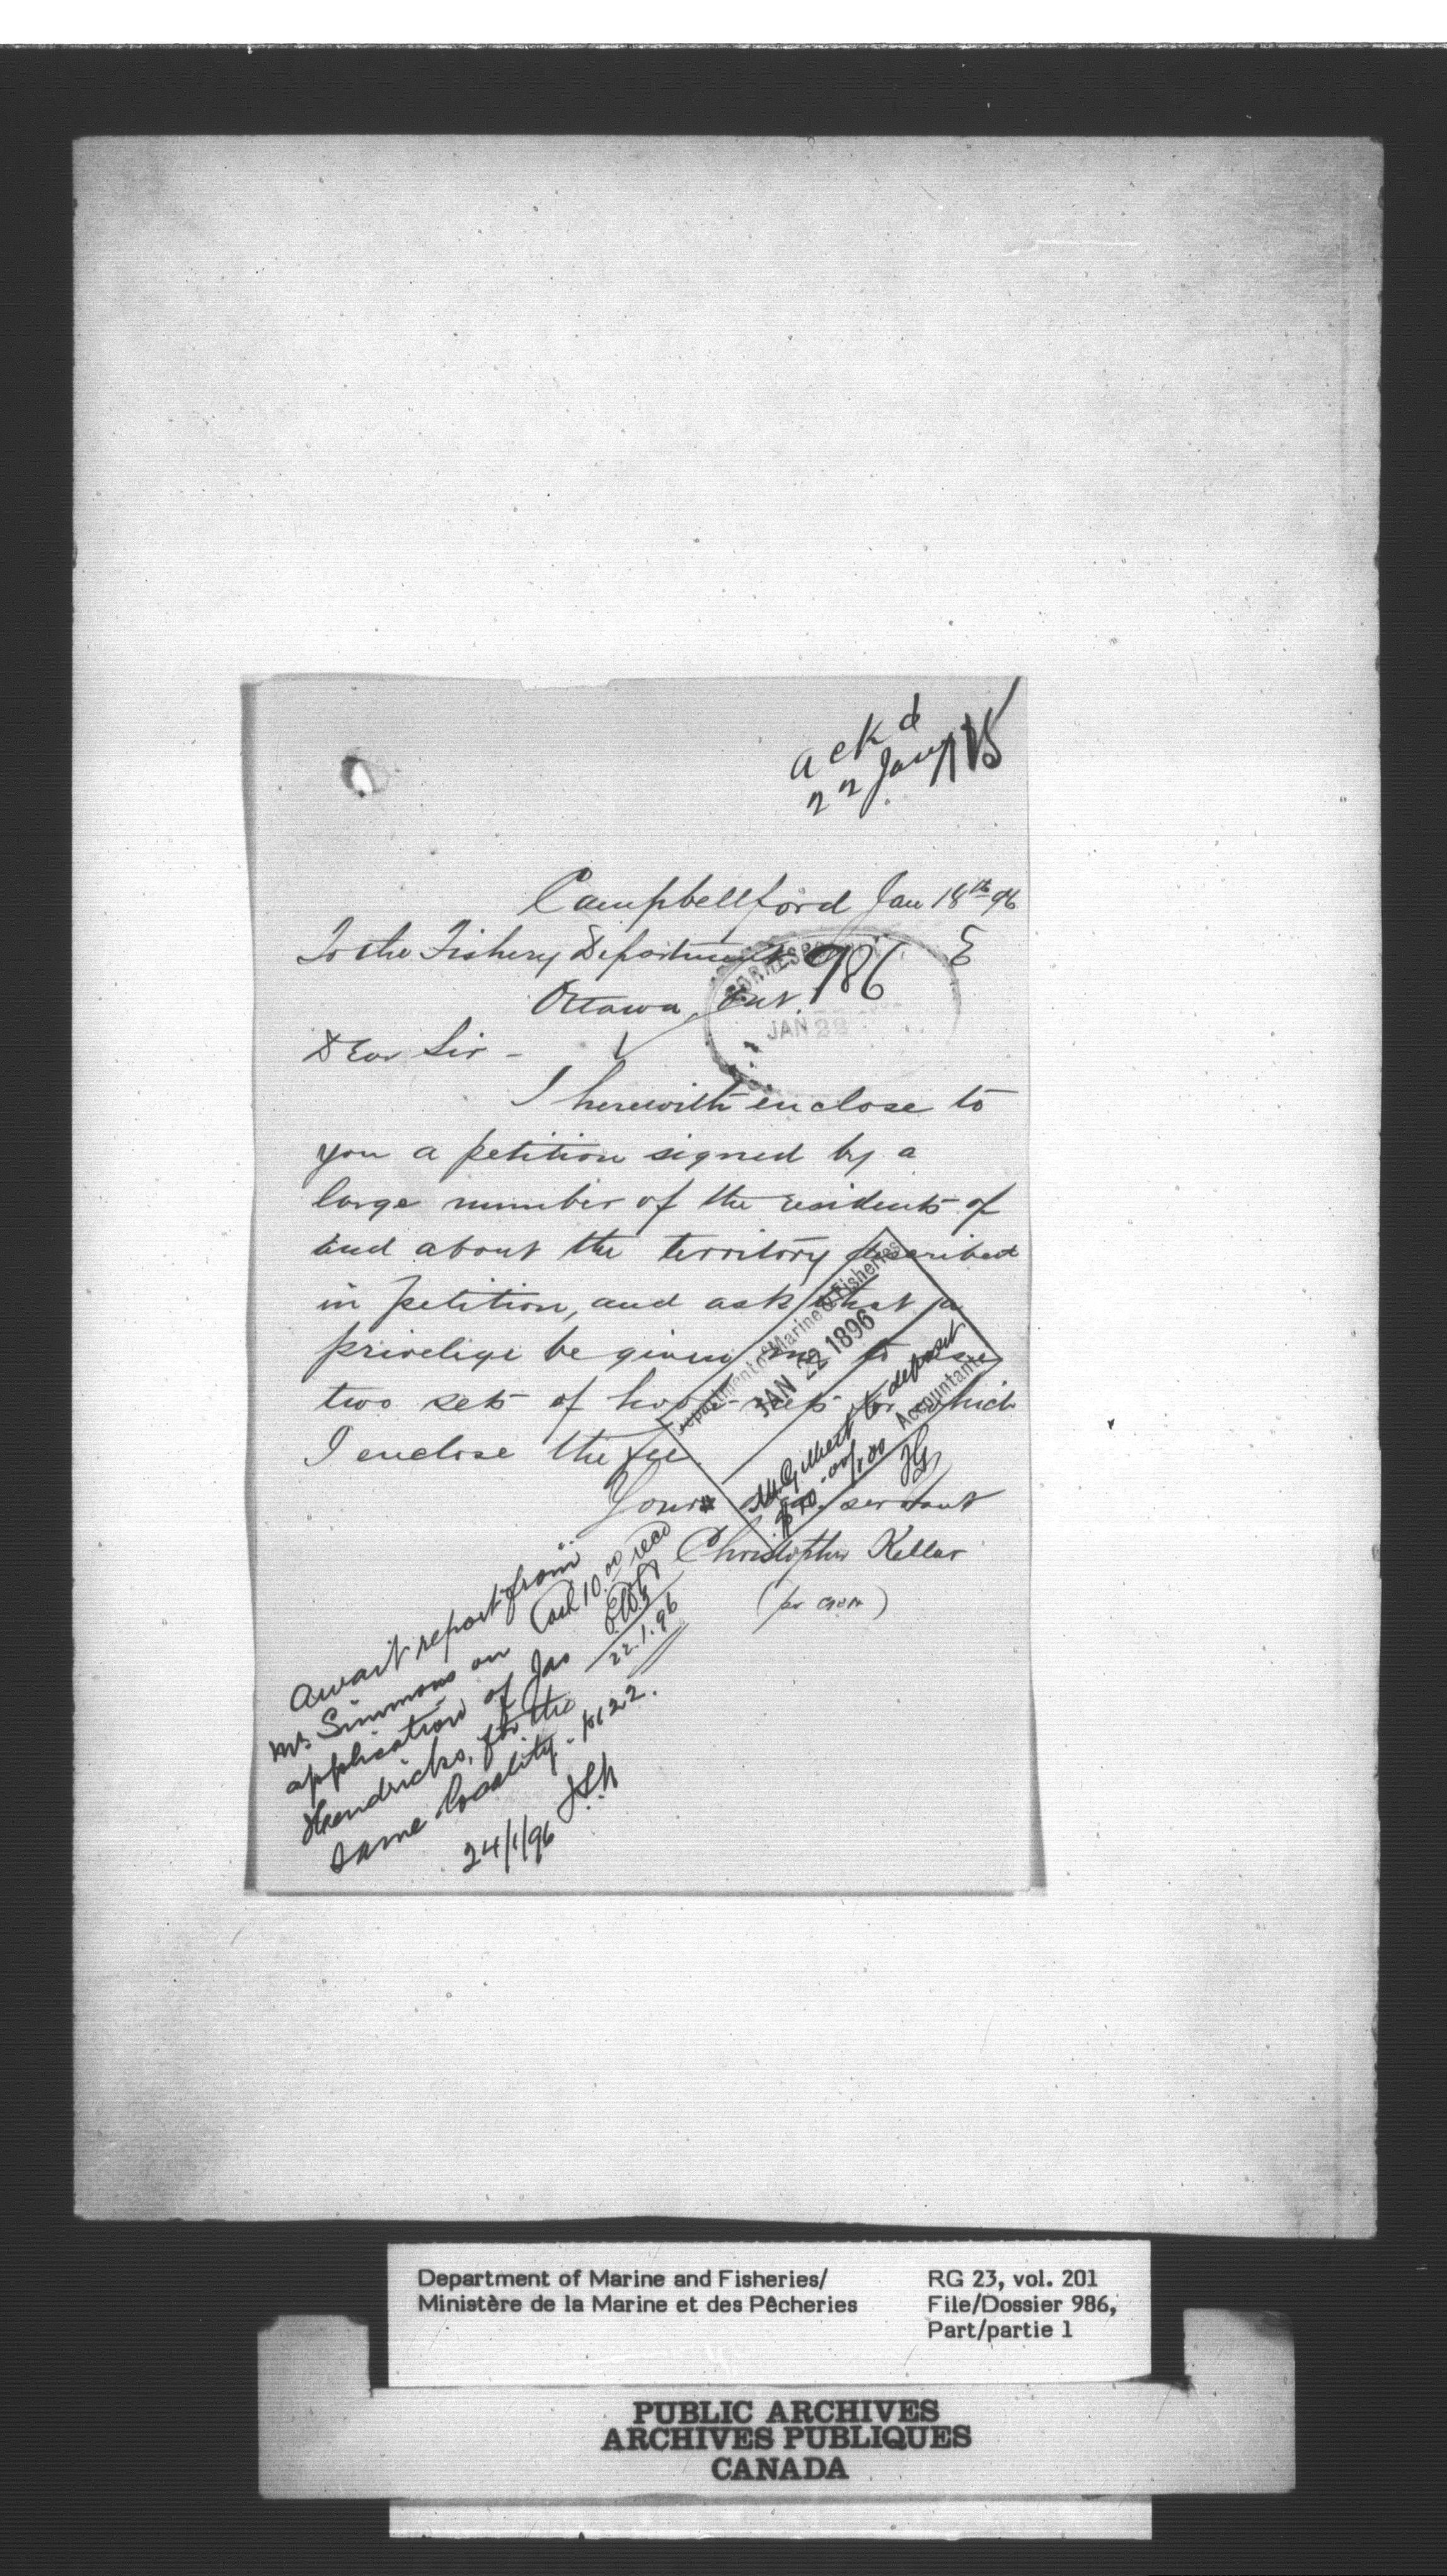 ackd
22 Jany
Campbellford Jan 18th 96
To the Fishery Department
986
E
Ottawa, Ont.
JAN 22
Dear Sir -
I herewith enclose to
you a petition signed by a
large number of the residents of
and about the territory described
in petition, and ask that a
privelige be given me to use
two sets of hoop-nets for which
I enclose the fee.
Yours servant
Christopher Kellar
Department of Marine & Fisheries
JAN 22 1896
Mr Gilbert to deposit
$10 00/100
Accountant
Cash 10.00 recd
22.1.96
Await report from
Mr Simmons on
application of Jas
Hendricks, for the
same locality.
24/1/96
Department of Marine and Fisheries/
Ministère de la Marine et des Pêcheries
RG 23, vol. 201
File/Dossier 986,
Part/partie 1
PUBLIC ARCHIVES
ARCHIVES PUBLIQUES
CANADA